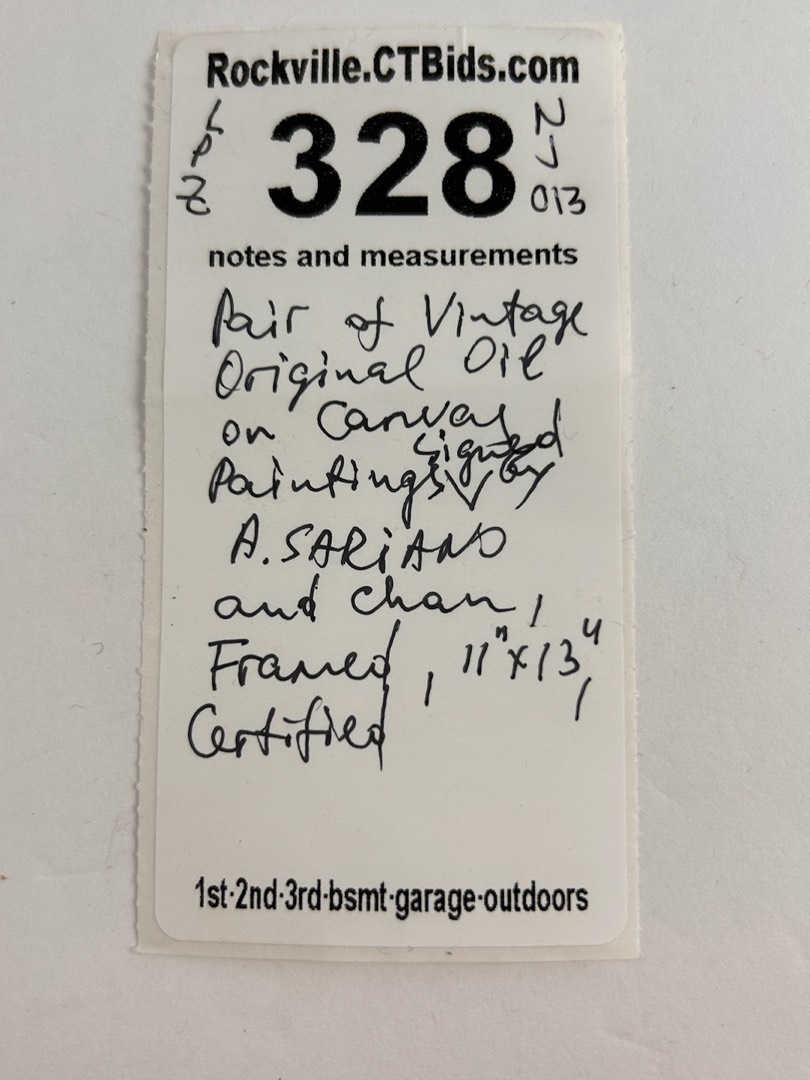 Rockville.CTBids.com
L P Z
328
N J 013
notes and measurements
Pair of Vintage
Original Oil
on Canvas
signed
Paintings by
A. SARiANO
and Chan,
Framed, 11"x13",
Certified
1st·2nd·3rd·bsmt·garage·outdoors